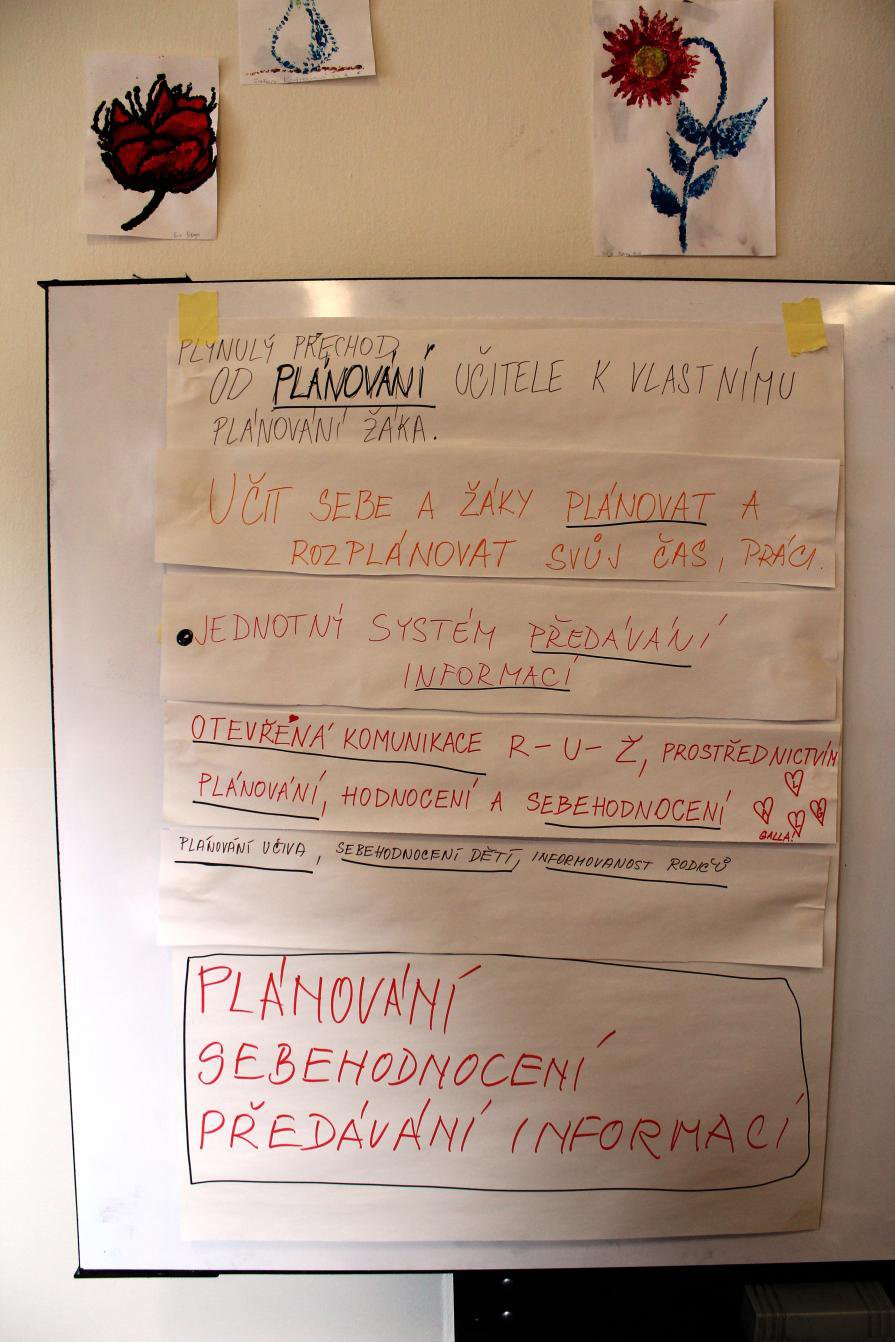 PLYNULÝ PŘECHOD
OD PLÁNOVÁNÍ UČITELE K VLASTNÍMU
PLÁNOVÁNÍ ŽÁKA.
UČIT SEBE A ŽÁKY PLÁNOVAT A
ROZPLÁNOVAT SVŮJ ČAS, PRÁCI.
JEDNOTNÝ SYSTÉM PŘEDÁVÁNÍ
INFORMACÍ
OTEVŘENÁ KOMUNIKACE R-U-Ž, PROSTŘEDNICTVÍM
PLÁNOVÁNÍ, HODNOCENÍ A SEBEHODNOCENÍ
PLÁNOVÁNÍ UČIVA, SEBEHODNOCENÍ DĚTÍ, INFORMOVANOST RODIČŮ
PLÁNOVÁNÍ
SEBEHODNOCENÍ
PŘEDÁVÁNÍ INFORMACÍ